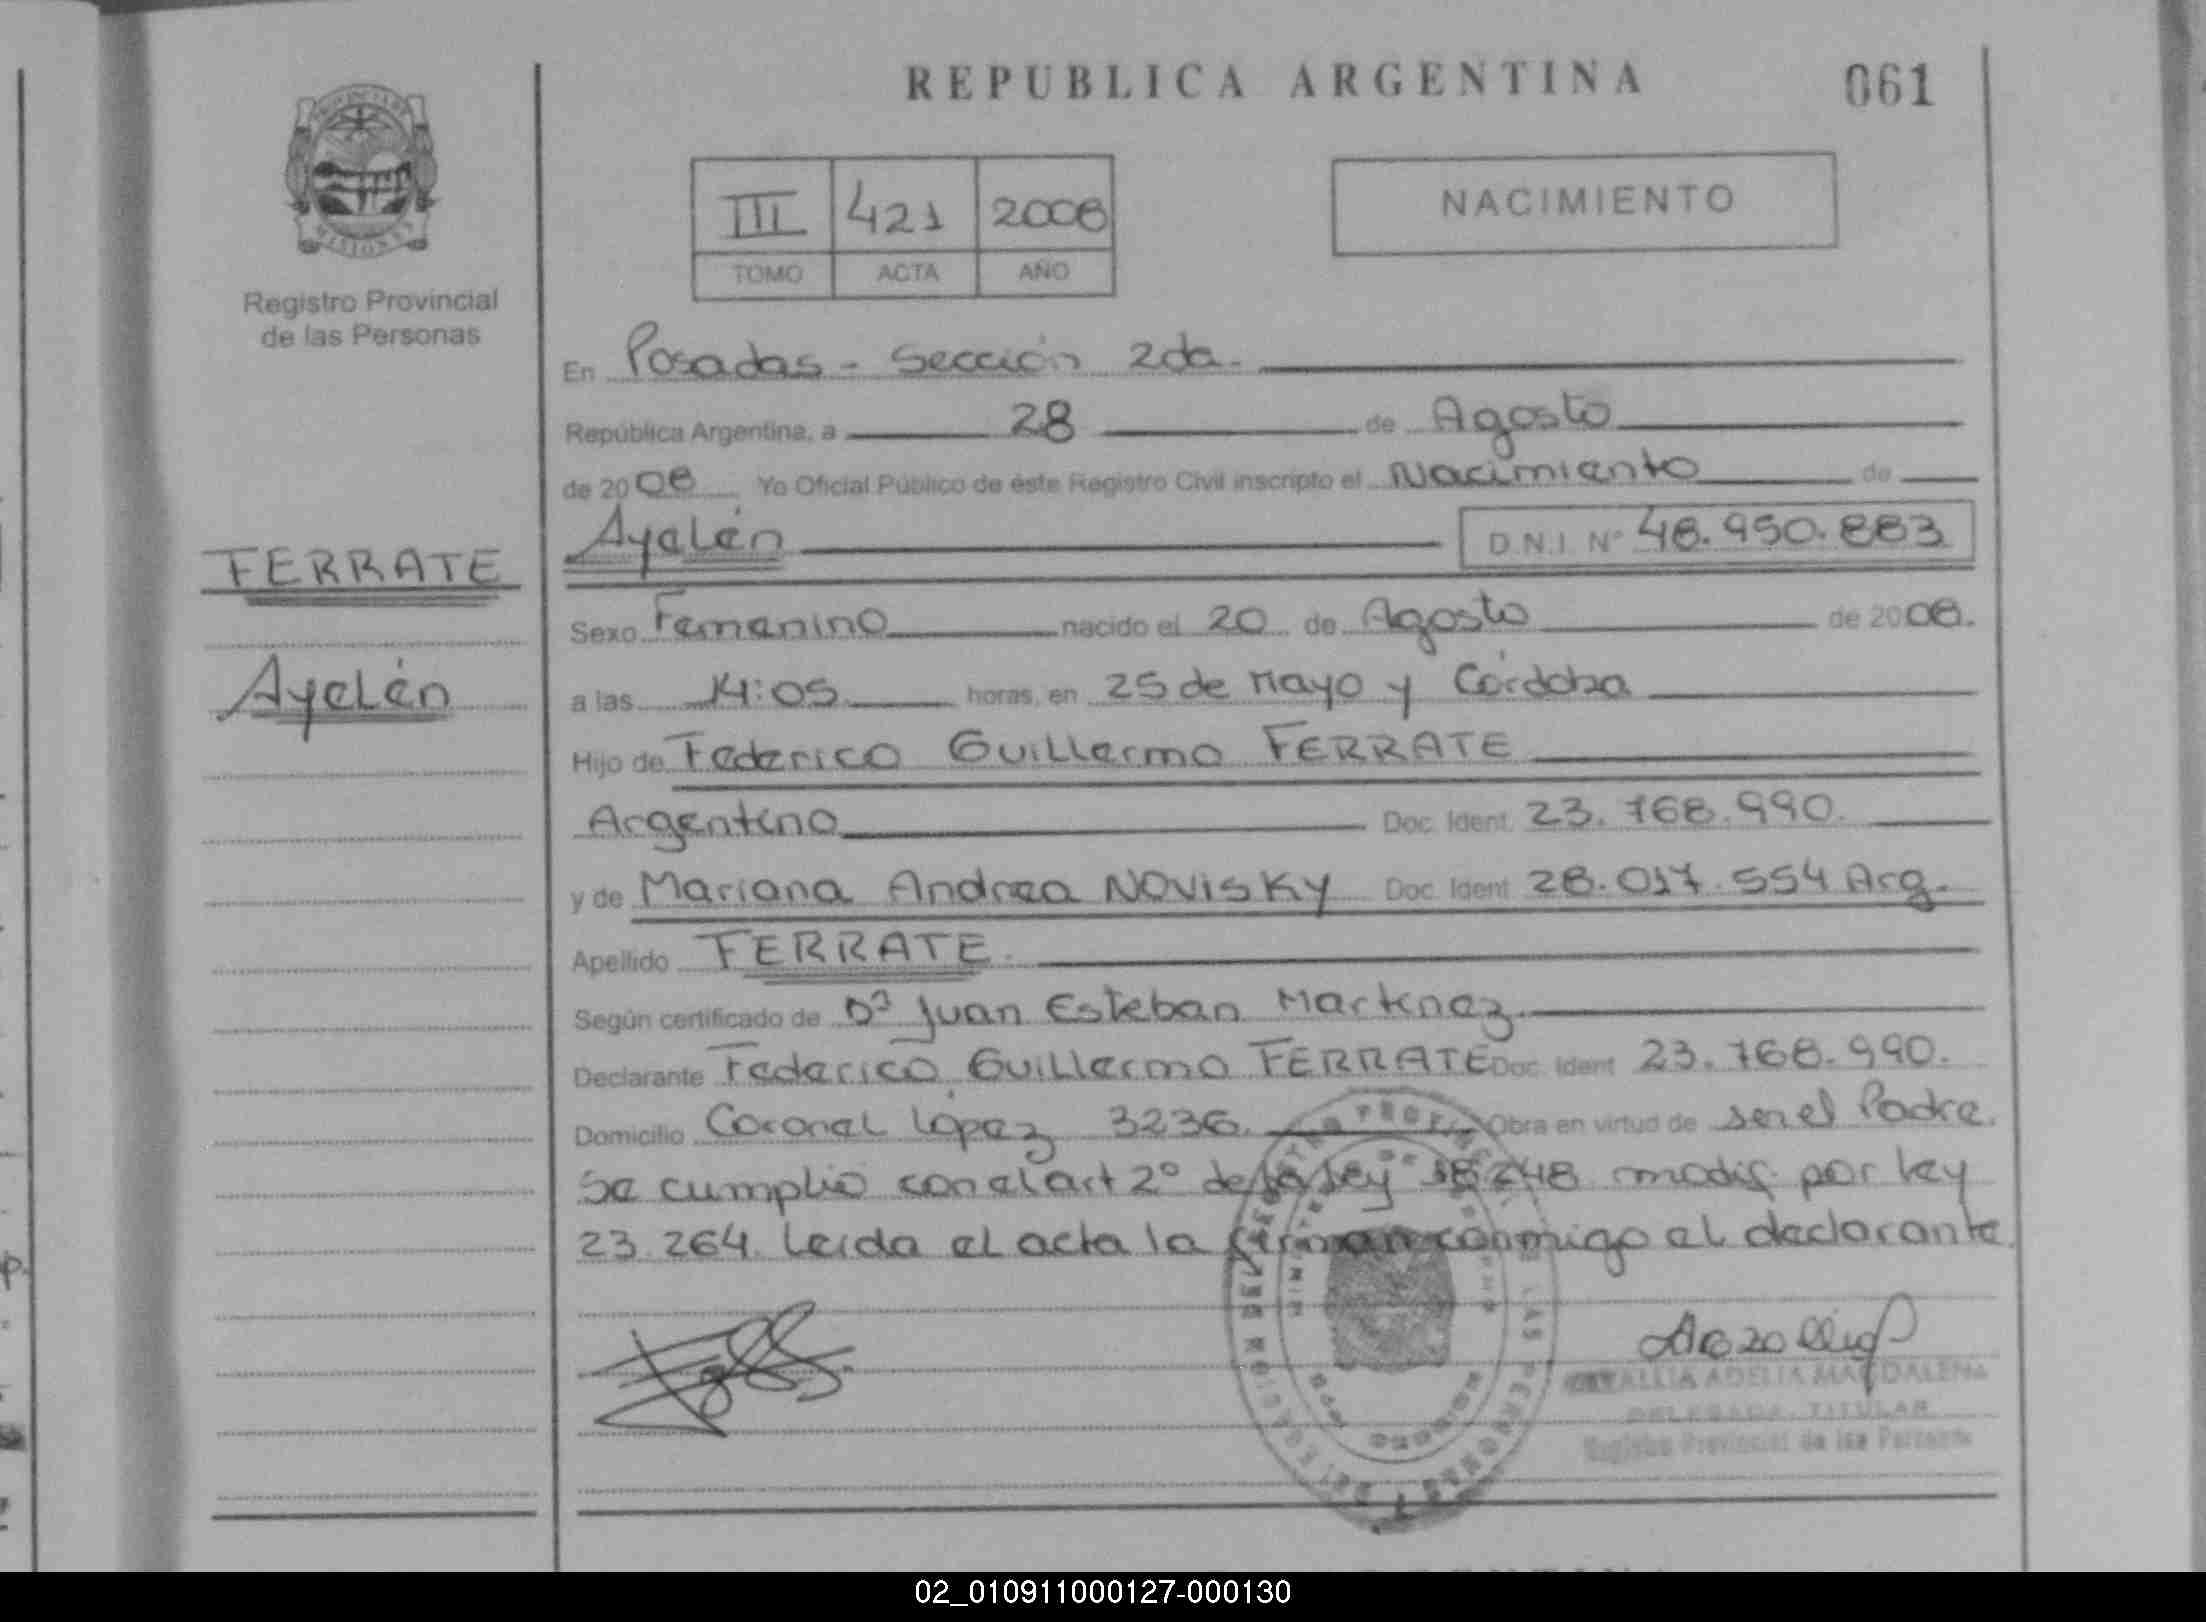 REPUBLICA ARGENTINA
061
PROVINCIA DE
MISIONES
Registro Provincial
de las Personas
III 421 2008
TOMO ACTA AÑO
NACIMIENTO
En Posadas - Sección 2da.
República Argentina, a 28 de Agosto
de 2008 Yo Oficial Público de éste Registro Civil inscripto el Nacimiento de
FERRATE
Ayelén D.N.I. Nº 48.950.883
Sexo Femenino nacido el 20 de Agosto de 2008.
Ayelén
a las 14:05 horas, en 25 de Mayo y Córdoba
Hijo de Federico Guillermo FERRATE
Argentino Doc. Ident. 23.768.990.
y de Mariana Andrea NOVISKY Doc. Ident 28.017.554 Arg.
Apellido FERRATE.
Según certificado de Juan Esteban Martinez.
Declarante Federico Guillermo FERRATE Doc. Ident 23.768.990.
Domicilio Coronel López 3236. Obra en virtud de ser el Padre.
Se cumplió con el art 2º de la ley 18248 modif. por ley
23.264. Leida el acta la firman conmigo el declarante.
ADELIA MAGDALENA
DELEGADA TITULAR
Registro Provincial de las Personas
02_010911000127-000130